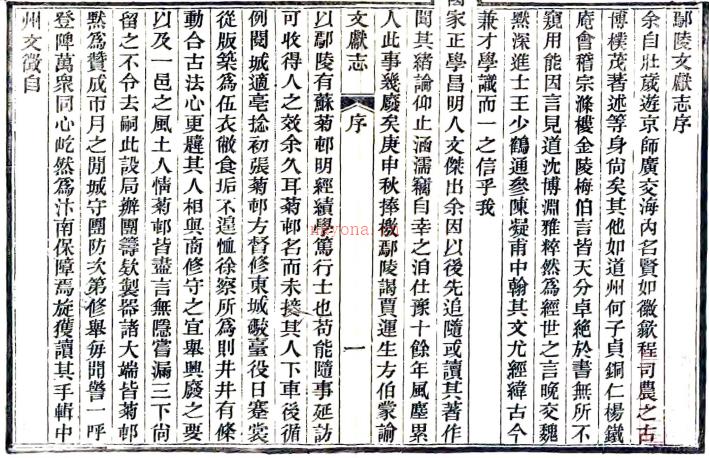 鄢陵文獻志序
余自壯歲遊京師廣交海內名賢如徽歙程司農之古
博樸茂著述等身尙矣其他如道州何子貞銅仁楊鐵
庵會稽宗滌樓金陵梅伯言皆天分卓絕於書無所不
窺用能因言見道沈博淵雅粹然爲經世之言晚交魏
黙深進士王少鶴通參陳凝甫中翰其文尤經緯古今
兼才學識而一之信乎我
國家正學昌明人文傑出余因以後先追隨或讀其著作
聞其緒論仰止涵濡竊自幸之洎仕豫十餘年風塵累
人此事幾廢矣庚申秋捧檄鄢陵謁賈運生方伯蒙諭
文獻志 序 一
以鄢陵有蘇菊邨明經績學篤行士也苟能隨事延訪
可收得人之效余久耳菊邨名而未接其人下車後循
例閱城適亳捻初張菊邨方督修東城敵臺役日蹇裳
從版築爲伍衣敝食垢不遑恤徐察所爲則井井有條
動合古法心更韙其人相與商修守之宜舉興廢之要
以及一邑之風土人情菊邨皆盡言無隱嘗漏三下尙
留之不令去嗣此設局辦團籌欵製器諸大端皆菊邨
黙爲贊成帀月之閒城守團防次第修舉每聞警一呼
登陴萬衆同心屹然爲汴南保障焉旋獲讀其手輯中
州文徵自